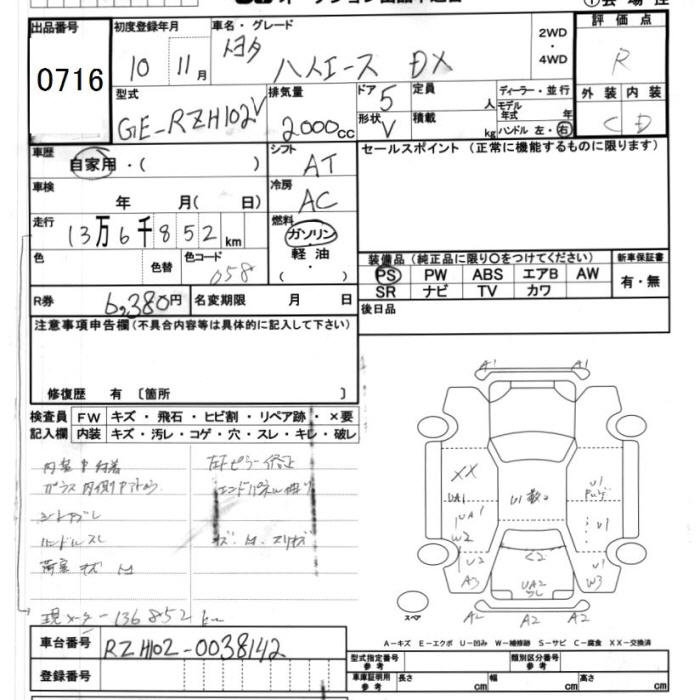 出品番号
0716
初度登録年月
10 11月
車名・グレード
トヨタ ハイエース DX
2WD
・
4WD
評価点
R
型式
GE-RZH102V
排気量
2000cc
ドア 5
形状 V
定員 人
積載 kg
ディーラー・並行
モデル年式 年
ハンドル 左・右
外装 内装
C D
車歴
自家用・( )
シフト
AT
セールスポイント(正常に機能するものに限ります)
車検
年 月( 日)
冷房
AC
走行
13万6千852km
燃料
ガソリン
軽油
・
( )
色
色替
色コード
058
装備品(純正品に限り〇をつけてください)
新車保証書
PS PW ABS エアB AW
SR ナビ TV カワ
有・無
R券 6,380円
名変期限 月 日
後日品
注意事項申告欄(不具合内容等は具体的に記入して下さい)
修復歴 有〔箇所 〕
検査員記入欄
FW キズ・飛石・ヒビ割・リペア跡・×要
内装 キズ・汚レ・コゲ・穴・スレ・キレ・破レ
ハンドルスレ
荷室キズ
現メーター136852km
A1 A1
XX
UA1
UA1
W2
U2
A3
U1
U1
U1
W3
C2
UA2
A2 A2 A2
スペア
A-キズ E-エクボ U-凹み W-補修跡 S-サビ C-腐食 XX-交換済
車台番号
RZH102-0038142
登録番号
型式指定番号
参考
類別区分番号
参考
車庫証明用
参考
長さ cm
幅 cm
高さ cm